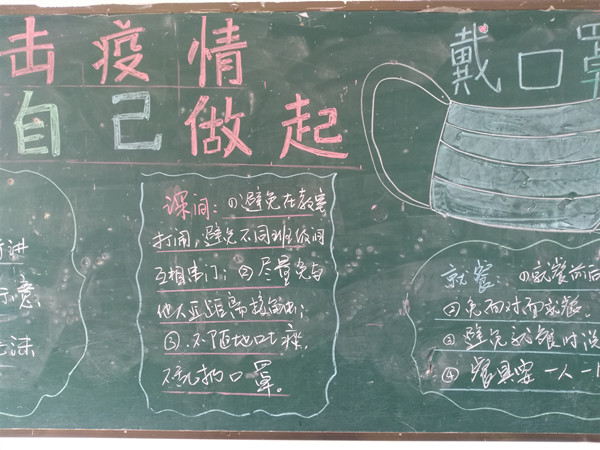 击疫情
自己做起
戴口罩
课间：①避免在教室
打闹，避免不同班级间
互相串门；②尽量免与
他人近距离接触；
③.不随地吐痰，
不乱扔口罩。
就餐：①就餐前后
②免面对面就餐.
③避免就餐时说
④餐具要一人一
讲
意
沫